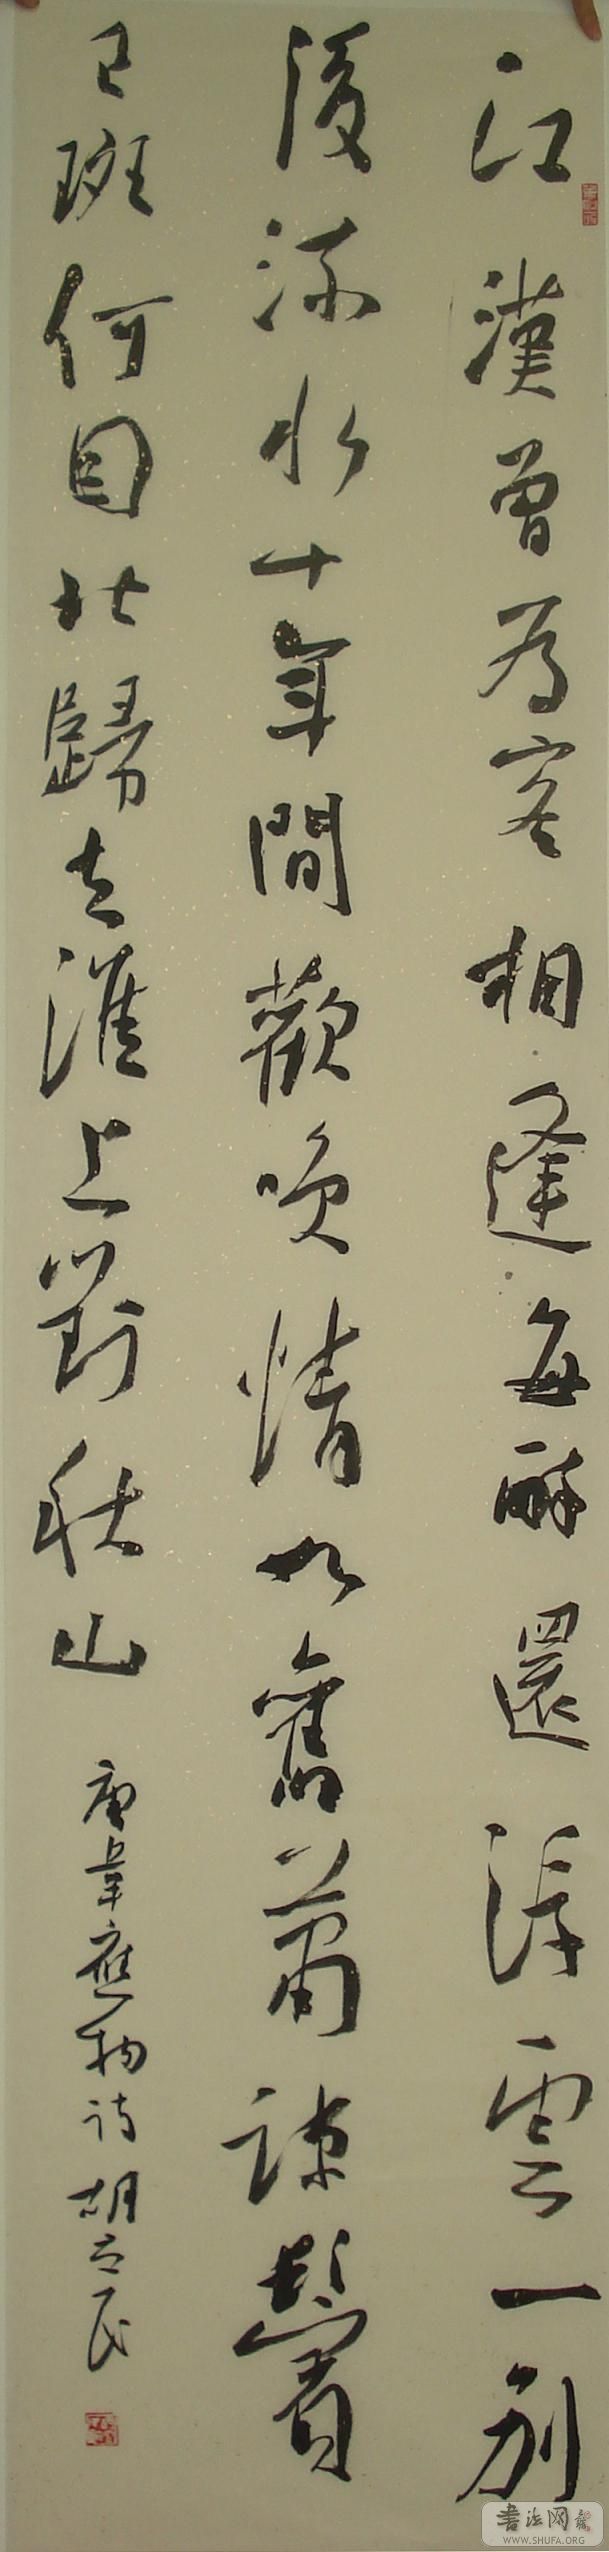 江漢曾為客相逢每醉還浮雲一别
後流水十年間歡咲情如舊蕭疎鬢
已斑何因北歸去淮上對秋山
唐韋應物诗 胡立民
书法网
WWW.SHUFA.ORG